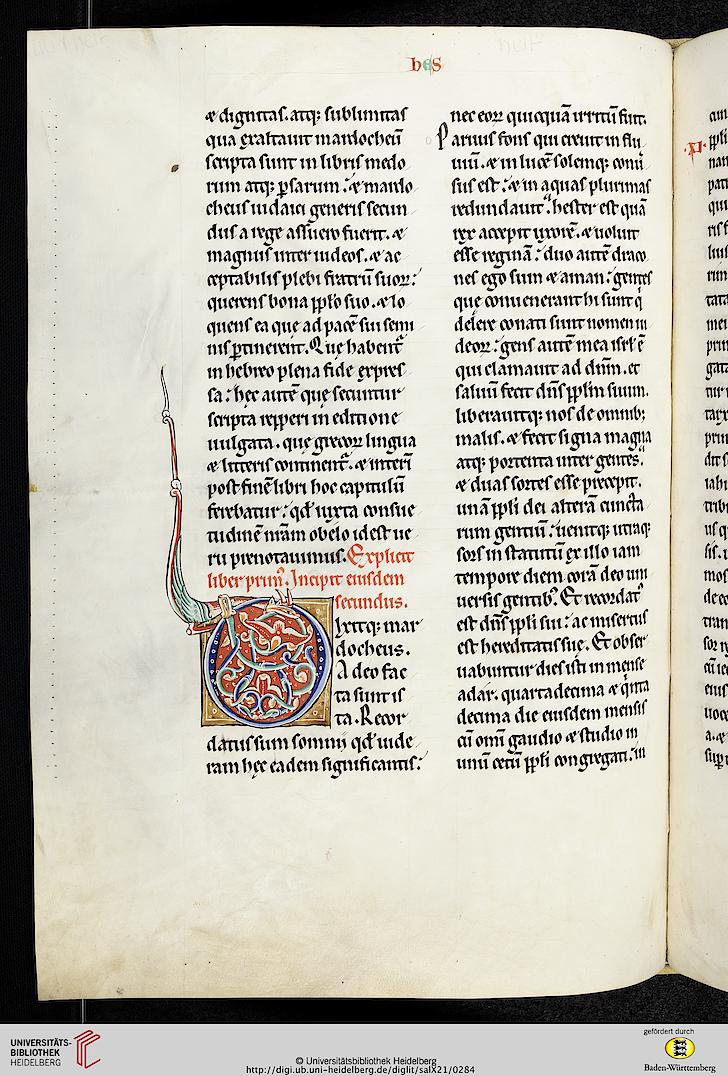 hes
& dignitas. atq; sublimitas
qua exaltauit mardocheũ
scripta sunt in libris medo
rum atq; psarum: & mardo
cheus iudaici generis secun
dus a rege assuero fuerit. &
magnus inter iudeos. & ac
ceptabilis plebi fratrũ suoꝝ:
querens bona pplo suo. & lo
quens ea que ad pacẽ sui semi
nis ptinerent. Que habent̃
in hebreo plena fide expres
sa: hęc autẽ quę secuntur
scripta repperi in editione
uulgata. quę grecoꝝ lingua
& litteris continent̃. & interĩ
post finẽ libri hoc capitulũ
ferebatur: qđ iuxta consue
tudinẽ nr̃am obelo id est ue
ru prenotauimus. Explicit
liber prim᷒. Incipit eiusdem
secundus.
Dixitq; mar
docheus.
A deo fac
ta sunt is
ta. Recor
datus sum somnij qđ uide
ram hęc eadem significantis:
nec eoꝝ quicquã irritũ fuit.
Paruus fons qui creuit in flu
uiũ. & in lucẽ solemq; conu
sus est: & in aquas plurimas
redundauit: hester est quã
rex accepit uxorẽ. & uoluit
esse reginã: duo autẽ draco
nes ego sum & aman: gentes
que conuenerant hi sunt q̇
delere conati sunt nomen iu
deoꝝ: gens autẽ mea isrl̃ ẽ
qui clamauit ad dñm. et
saluũ fecit dñs pplm suum.
liberauitq; nos de omnib;
malis. & fecit signa magna
atq; portenta inter gentes.
& duas sortes esse precepit.
unã ppli dei alterã cuncta
rum gentiũ: uenitq; utraq;
sors in statutũ ex illo iam
tempore diem corã deo uni
uersis gentib᷒. Et recordat᷒
est dñs ppli sui: ac misertus
est hereditatis sue. Et obser
uabuntur dies isti in mense
adar. quartadecima & q̇nta
decima die eiusdem mensis
cũ omĩ gaudio & studio in
unũ cetũ ppli congregati. in
·XI·
UNIVERSITÄTS-
BIBLIOTHEK
HEIDELBERG
© Universitätsbibliothek Heidelberg
http://digi.ub.uni-heidelberg.de/diglit/salX21/0284
gefördert durch
Baden-Württemberg